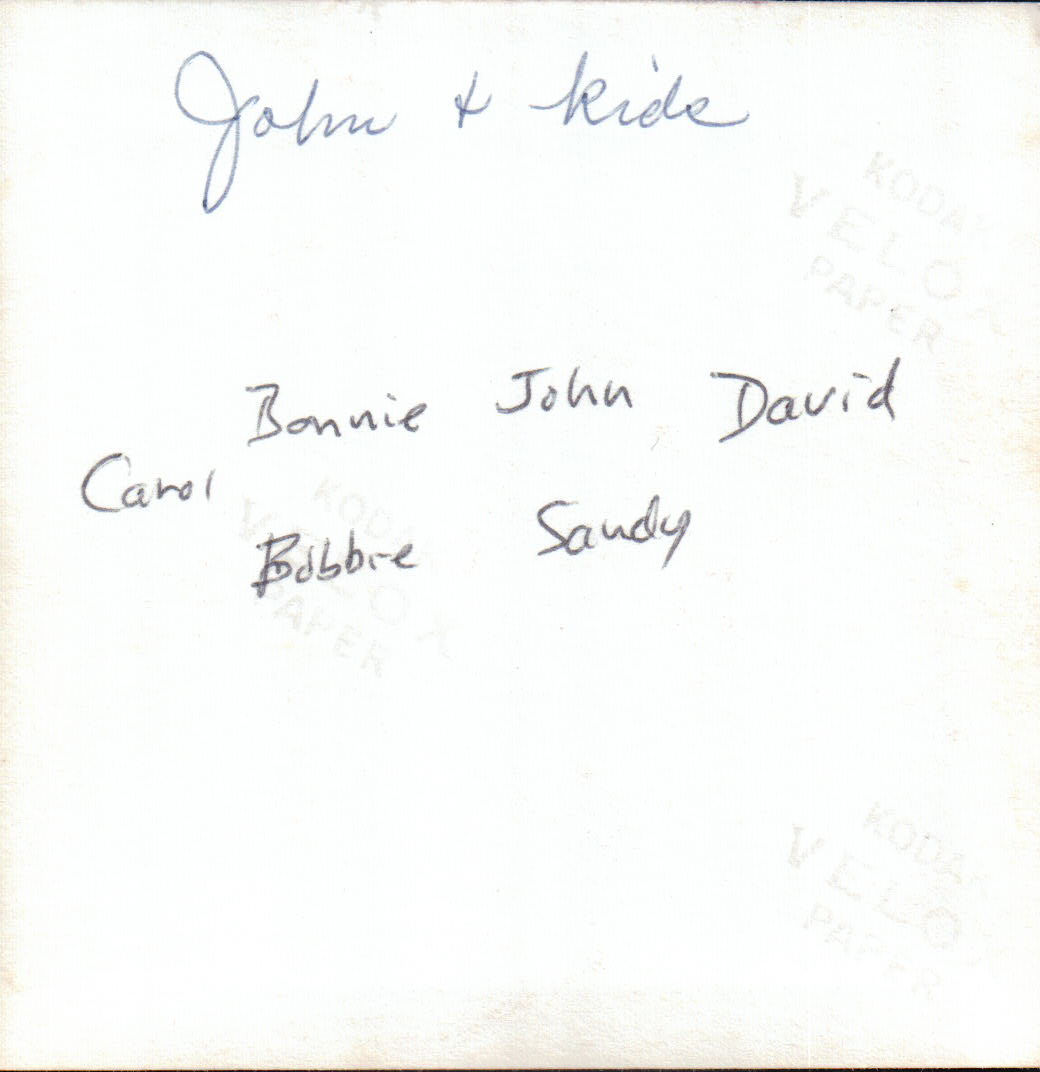 John & kids
KODAK
VELOX
PAPER
Bonnie John David
Carol
Bobbie Sandy
KODAK
VELOX
PAPER
KODAK
VELOX
PAPER